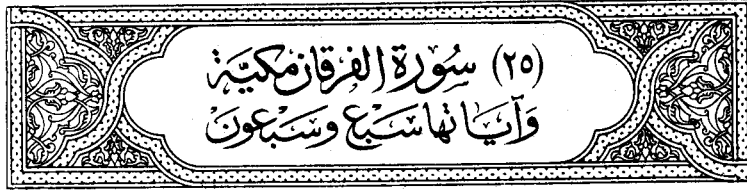 (٢٥) سُورَة الفرقان مكيّة
وَآيَاتها سَبْع وسَبْعون